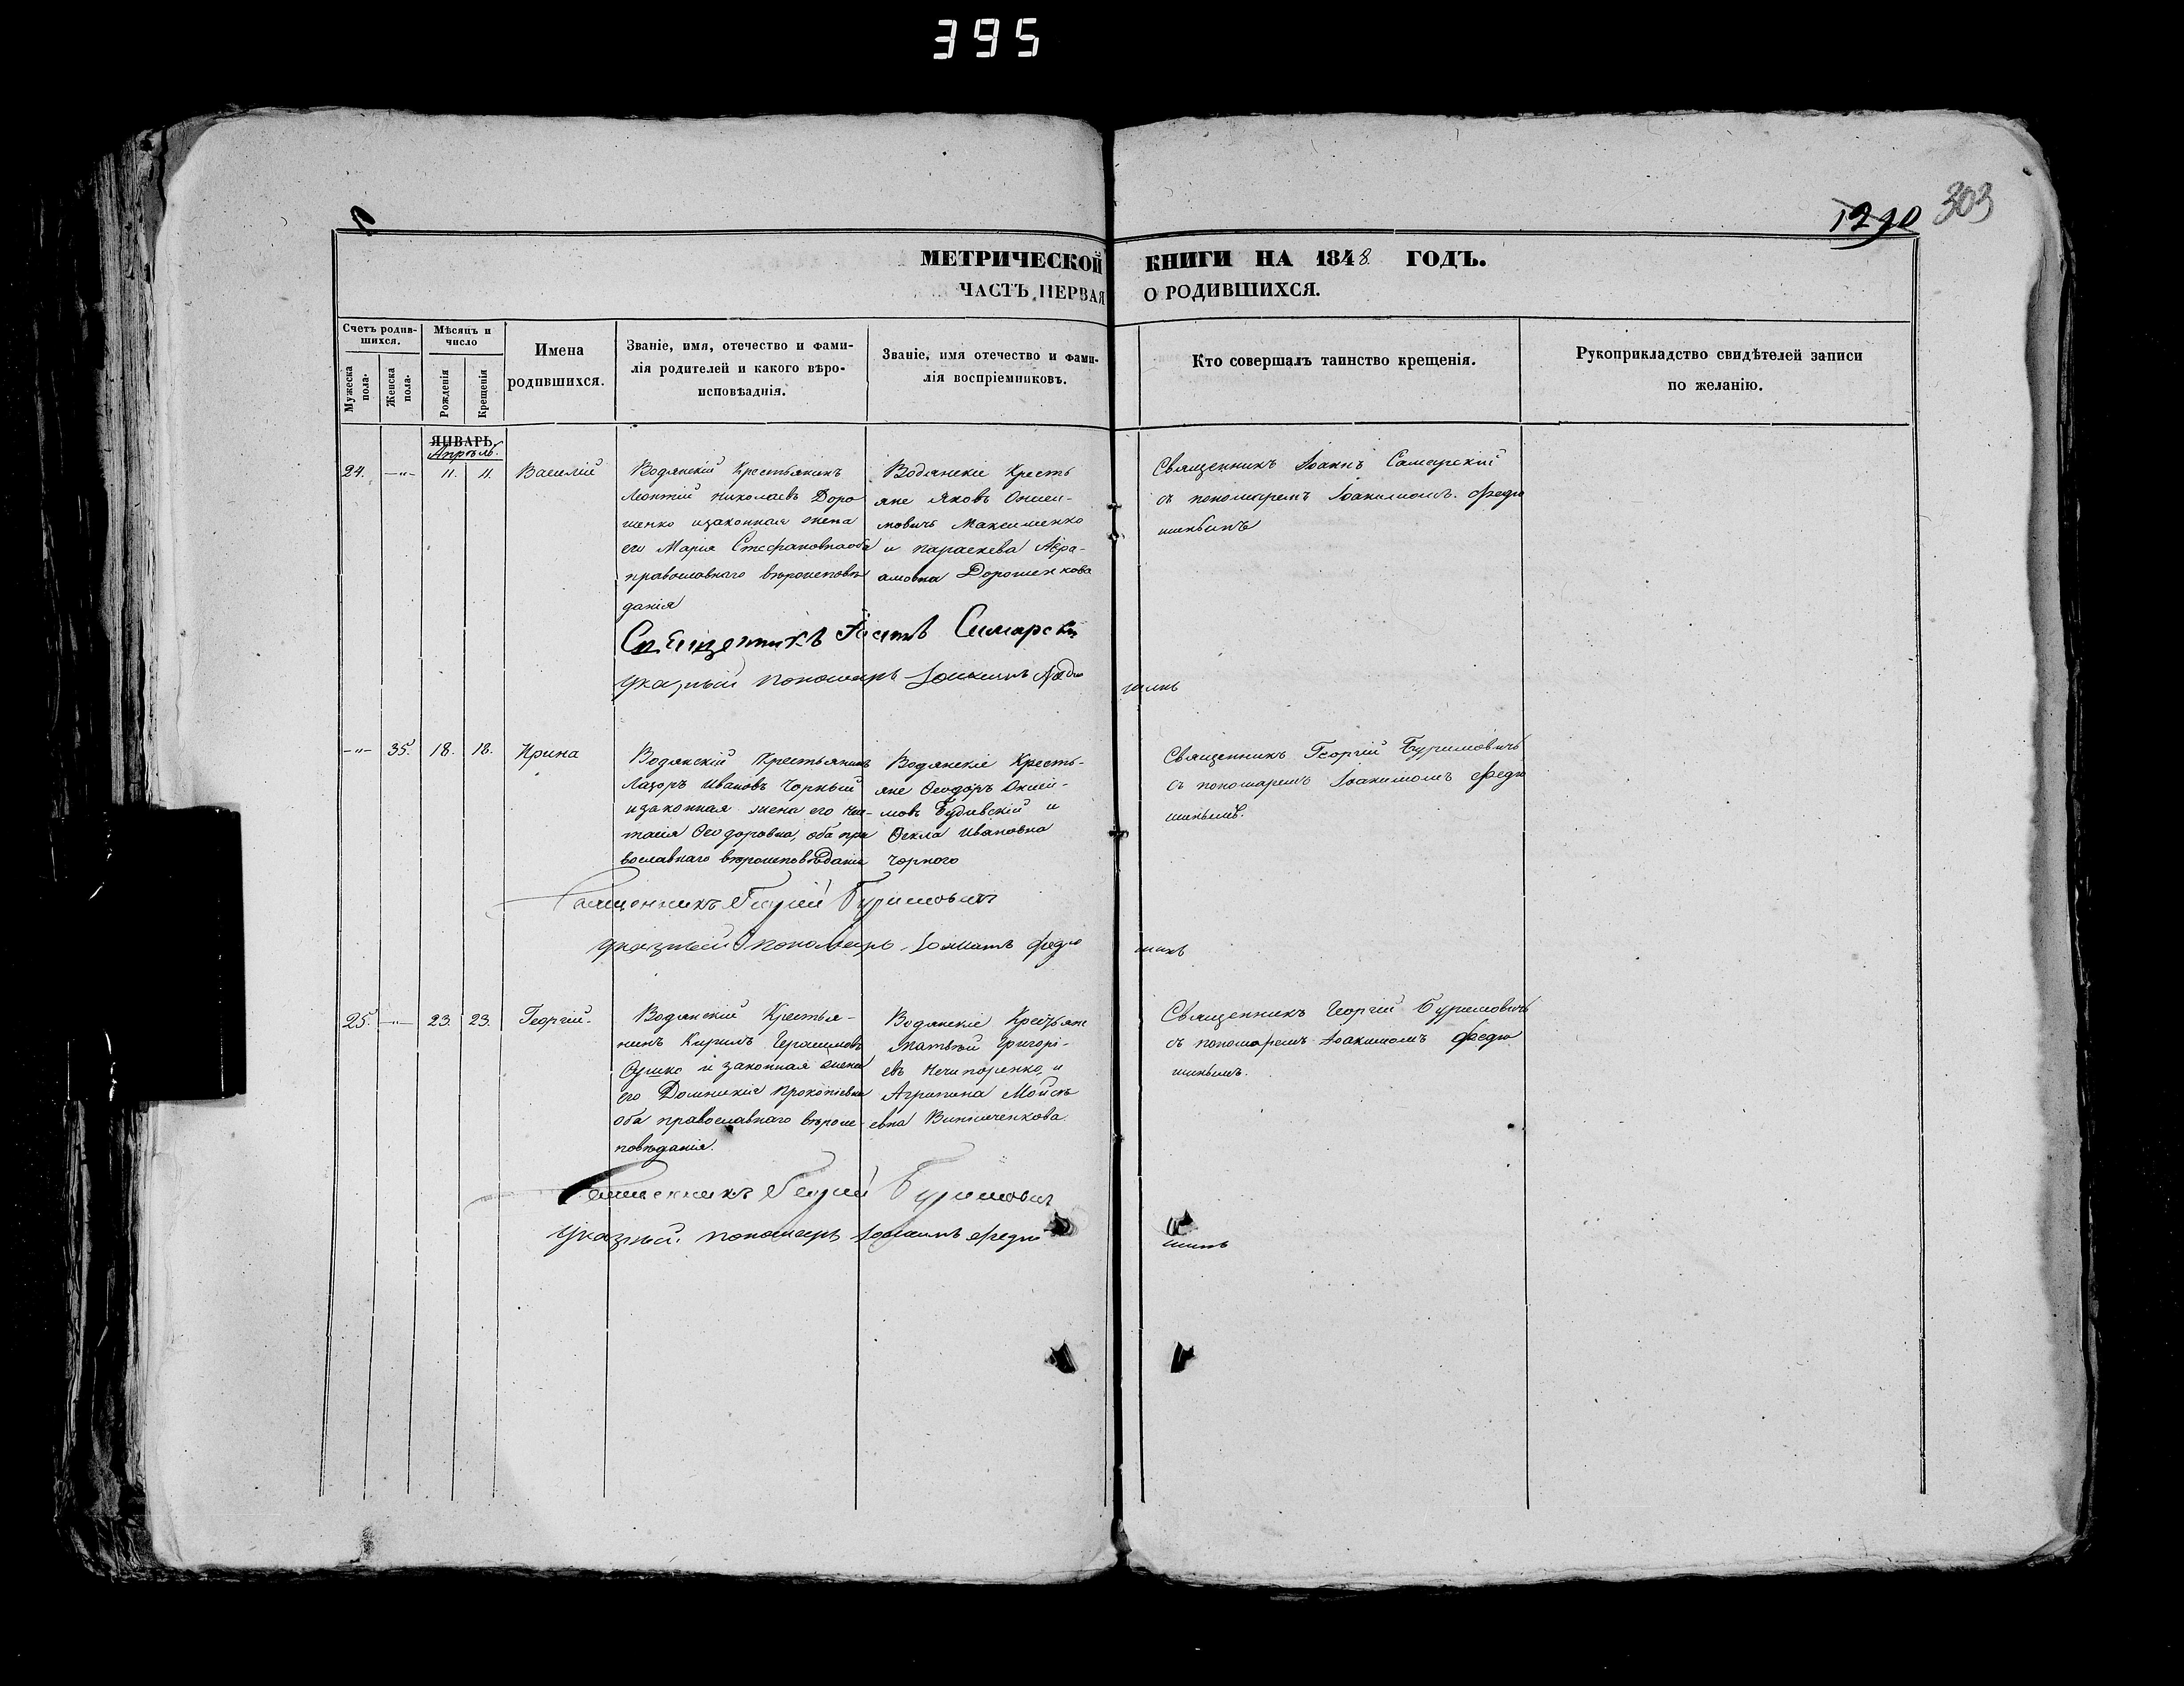 395
303
1290
МЕТРИЧЕСКОЙ КНИГИ НА 1848. ГОДЪ.
ЧАСТЬ ПЕРВАЯ О РОДИВШИХСЯ.
Счетъ родив-
шихся.
Мужеска
пола.
Женска
пола.
Мѣсяцъ и
число
Рожденія
Крещенія
Имена
родившихся.
Званіе, имя, отечество и фами-
лія родителей и какого вѣро-
исповѣданія.
Званіе, имя отечество и фами-
лія воспріемниковъ.
Кто совершалъ таинство крещенія.
Рукоприкладство свидѣтелей записи
по желанію.
ЯНВАРЬ.
Апрѣль.
24. —"— 11. 11. Василій
Водянскій Крестьянинъ
Леонтій Николаевъ Доро
шенко изаконная жена
его Марія Стефановна оба
православнаго вѣроисповѣ
данія
Водянскіе Кресть
яне Яковъ Ониси-
мовичъ Максименко
и Параскева Авра-
амовна Дорошенкова
Священникъ Іоаннъ Самарскій
съ пономаремъ Іоакимомъ Федю
шинымъ
Священникъ Іоаннъ Самарскій
Указный пономарь Іоакимъ Федю
шинъ
—"— 35. 18. 18. Ирина
Водянскій Крестьянинъ
Лазоръ Ивановъ Чорный
изаконная жена его Нас-
тасія Ѳеодоровна, оба пра
вославнаго вѣроисповѣданія
Водянскіе Кресть-
яне Ѳеодоръ Ониси-
мовъ и
Ѳекла Ивановна
Чорного
Священникъ Георгій Буримовичъ
съ пономаремъ Іоакимомъ Федю
шинымъ.
Священникъ Георгій Буримовичъ
Указный пономарь Іоакимъ Федю
шинъ
25. —"— 23. 23. Георгій.
Водянскій Крестья-
нинъ Кирилъ Герасимовъ
и законная жена
его Домникія Прокопіевна
оба православнаго вѣроис-
повѣданія.
Водянскіе Крестьяне
Матвѣй Григорі-
евъ Нечипоренко, и
Агрипина Мойсе
евна Винниченкова.
Священникъ Георгій Буримовичъ
съ пономаремъ Іоакимомъ Федю
шинымъ.
Священникъ Георгій Буримовичъ
Указный пономарь Іоакимъ Федю
шинъ